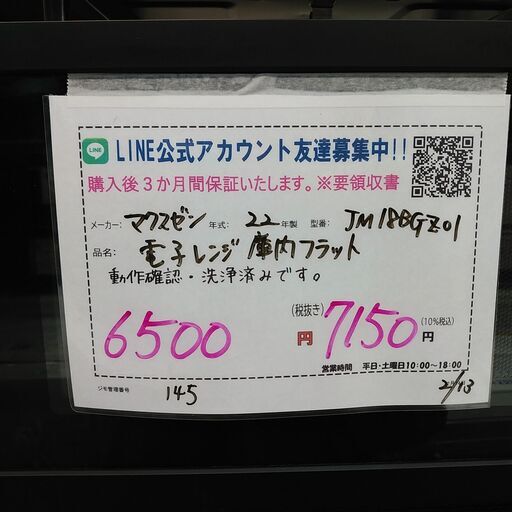 LINE LINE公式アカウント友達募集中!!
購入後3か月間保証いたします。※要領収書
メーカー: マクスゼン 年式: 22年製 型番: JM18BGZ01
品名: 電子レンジ 庫内フラット
動作確認・洗浄済みです。
6500 (税抜き)円 7150 (10%税込)円
営業時間 平日・土曜日10:00～18:00
ジモ管理番号 145